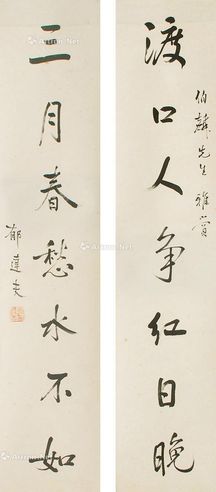 伯麟先生雅賞
渡口人争紅日晚
二月春愁水不如
郁達夫